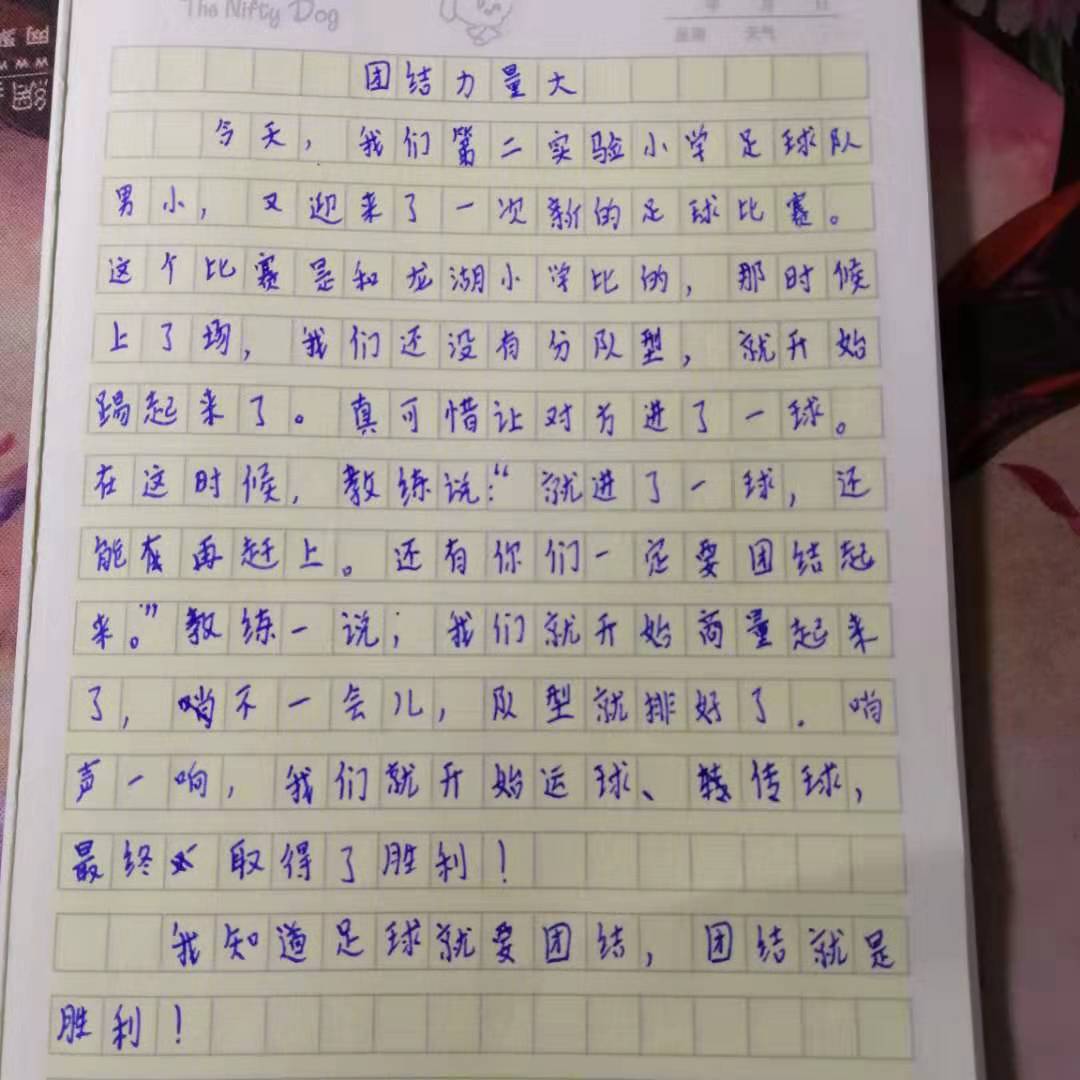 The Nifty Dog
年 月 日
星期 天气
团结力量大
今天，我们第二实验小学足球队
男小，又迎来了一次新的足球比赛。
这个比赛是和龙湖小学比的，那时候
上了场，我们还没有分队型，就开始
踢起来了。真可惜让对方进了一球。
在这时候，教练说：“就进了一球，还
能再赶上。还有你们一定要团结起
来。”教练一说；我们就开始商量起来
了，不一会儿，队型就排好了．哨
声一响，我们就开始运球、转传球，
最终取得了胜利！
我知道足球就要团结，团结就是
胜利！